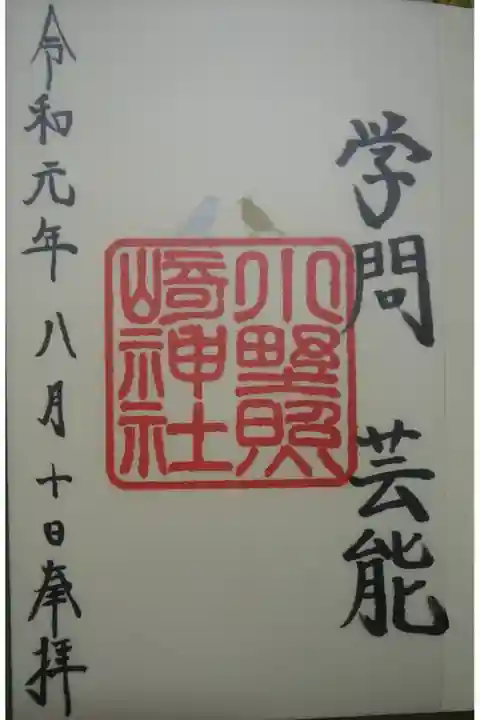 学問 芸能
小野照
崎神社
令和元年八月十日奉拝